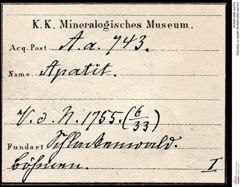 K. K. Mineralogisches Museum.
Acq. Post A. a. 743.
Name Apatit.
V. d. N. 1755. (6/33)
Fundort Schlackenwald.
Böhmen. I